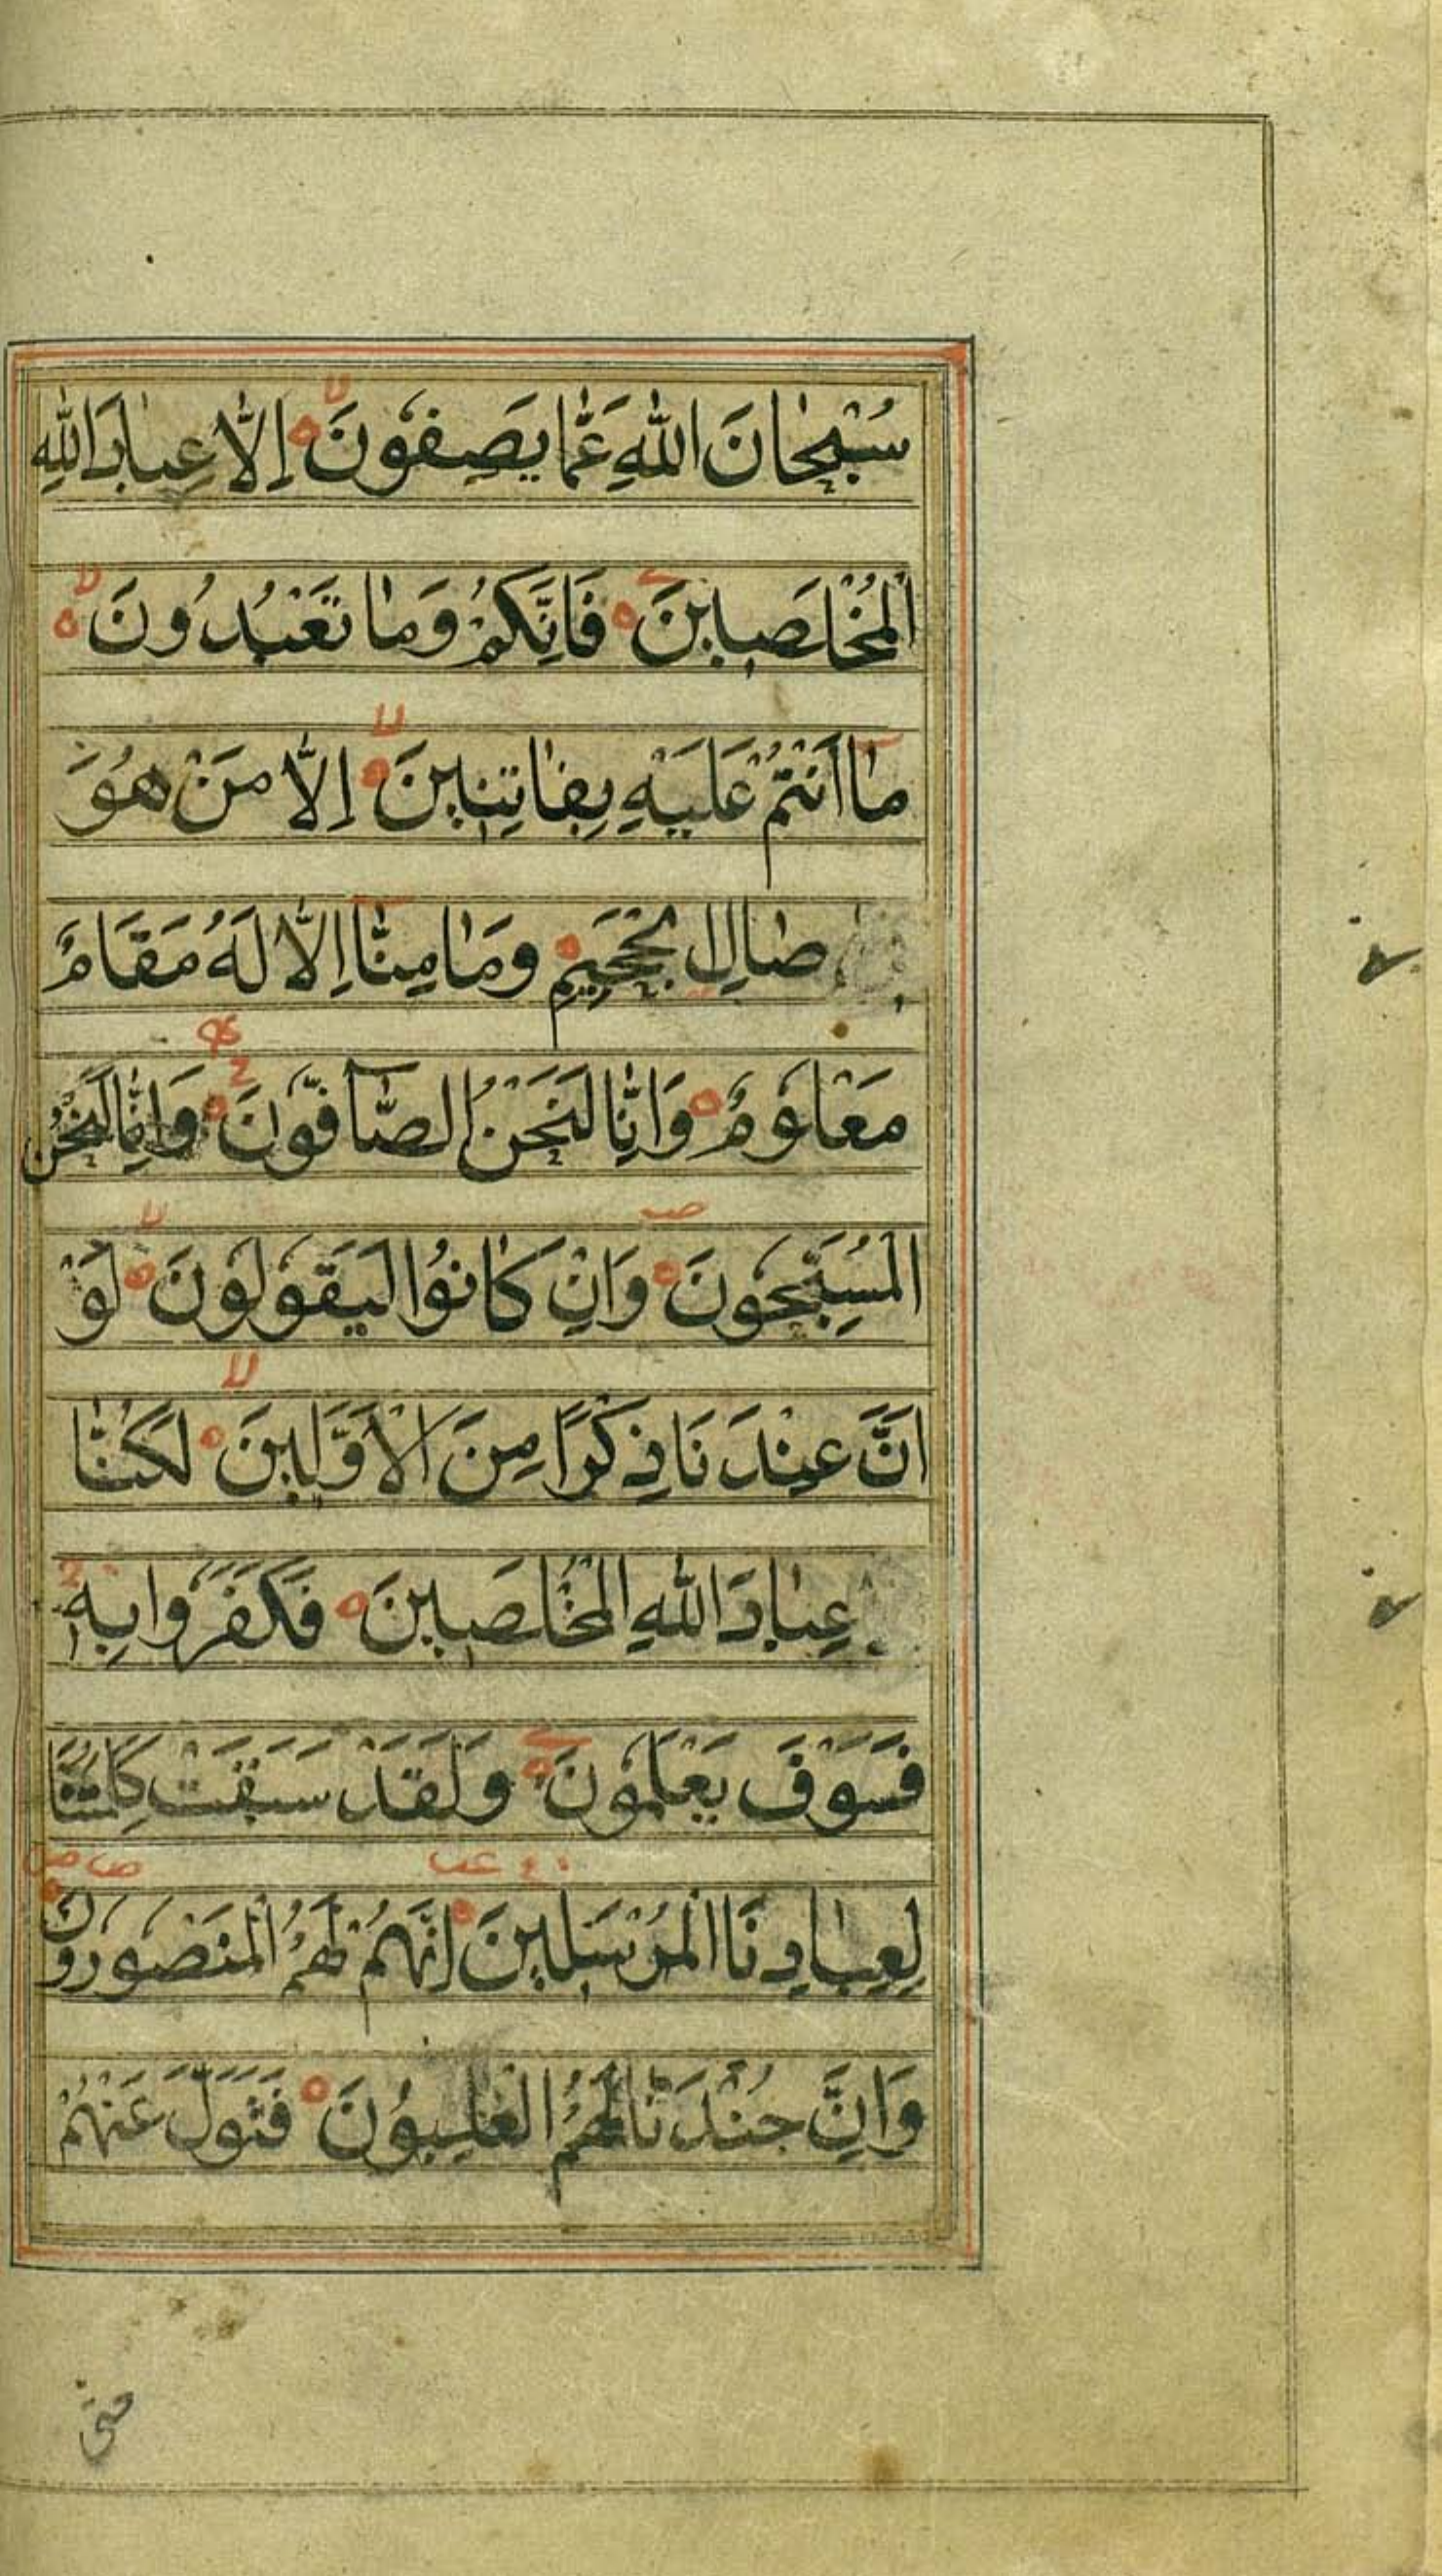 سُبْحَانَ اللّٰهِ عَمَّا يَصِفُونَ لا إِلَّا عِبَادَ اللّٰهِ
الْمُخْلَصِينَ فَإِنَّكُمْ وَمَا تَعْبُدُونَ لا
مَا أَنْتُمْ عَلَيْهِ بِفَاتِنِينَ لا إِلَّا مَنْ هُوَ
صَالِ الْجَحِيمِ وَمَا مِنَّا إِلَّا لَهُ مَقَامٌ
مَعْلُومٌ وَإِنَّا لَنَحْنُ الصَّافُّونَ وَإِنَّا لَنَحْنُ
الْمُسَبِّحُونَ وَإِنْ كَانُوا لَيَقُولُونَ لا لَوْ
اَنَّ عِنْدَنَا ذِكْرًا مِنَ الْأَوَّلِينَ لا لَكُنَّا
عِبَادَ اللّٰهِ الْمُخْلَصِينَ فَكَفَرُوا بِهِ
فَسَوْفَ يَعْلَمُونَ وَلَقَدْ سَبَقَتْ كَلِمَتُنَا
لِعِبَادِنَا الْمُرْسَلِينَ إِنَّهُمْ لَهُمُ الْمَنْصُورُونَ
وَإِنَّ جُنْدَنَا لَهُمُ الْغَالِبُونَ فَتَوَلَّ عَنْهُمْ